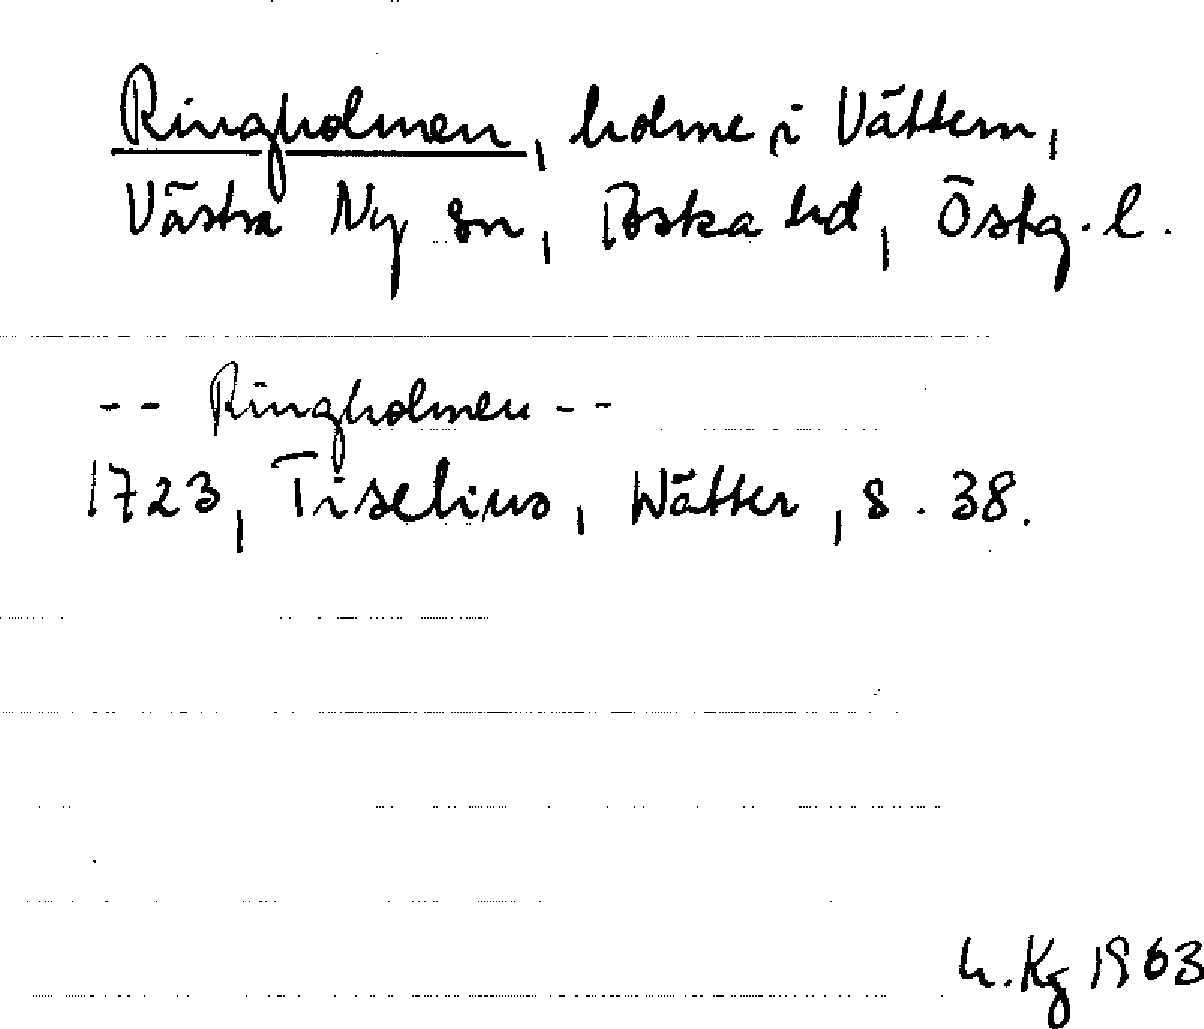 Ringholmen, holme i Vättern,
Västra Ny sn, Aska hd, Östg. l.
-- Ringholmen --
1723, Tiselius, Wätter, s. 38.
h. Kg 1963